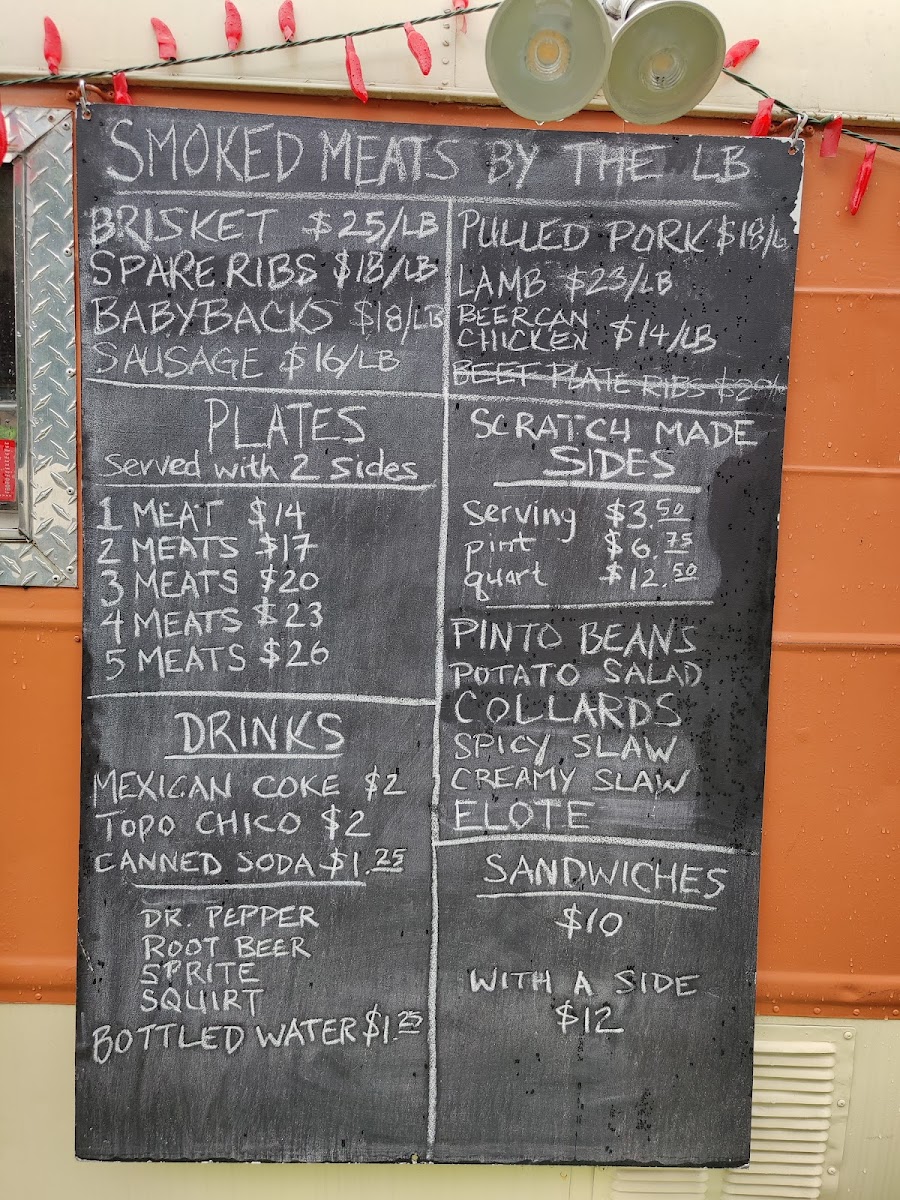 SMOKED MEATS BY THE LB
BRISKET $25/LB
SPARE RIBS $18/LB
BABYBACKS $18/LB
SAUSAGE $16/LB
PULLED PORK $18/L
LAMB $23/LB
BEERCAN
CHICKEN $14/LB
BEEF PLATE RIBS
PLATES
Served with 2 Sides
1 MEAT $14
2 MEATS $17
3 MEATS $20
4 MEATS $23
5 MEATS $26
DRINKS
MEXICAN COKE $2
TOPO CHICO $2
CANNED SODA $1.25
DR. PEPPER
ROOT BEER
SPRITE
SQUIRT
BOTTLED WATER $1.25
SCRATCH MADE
SIDES
Serving $3.50
pint $6.75
quart $12.50
PINTO BEANS
POTATO SALAD
COLLARDS
SPICY SLAW
CREAMY SLAW
ELOTE
SANDWICHES
$10
WITH A SIDE
$12